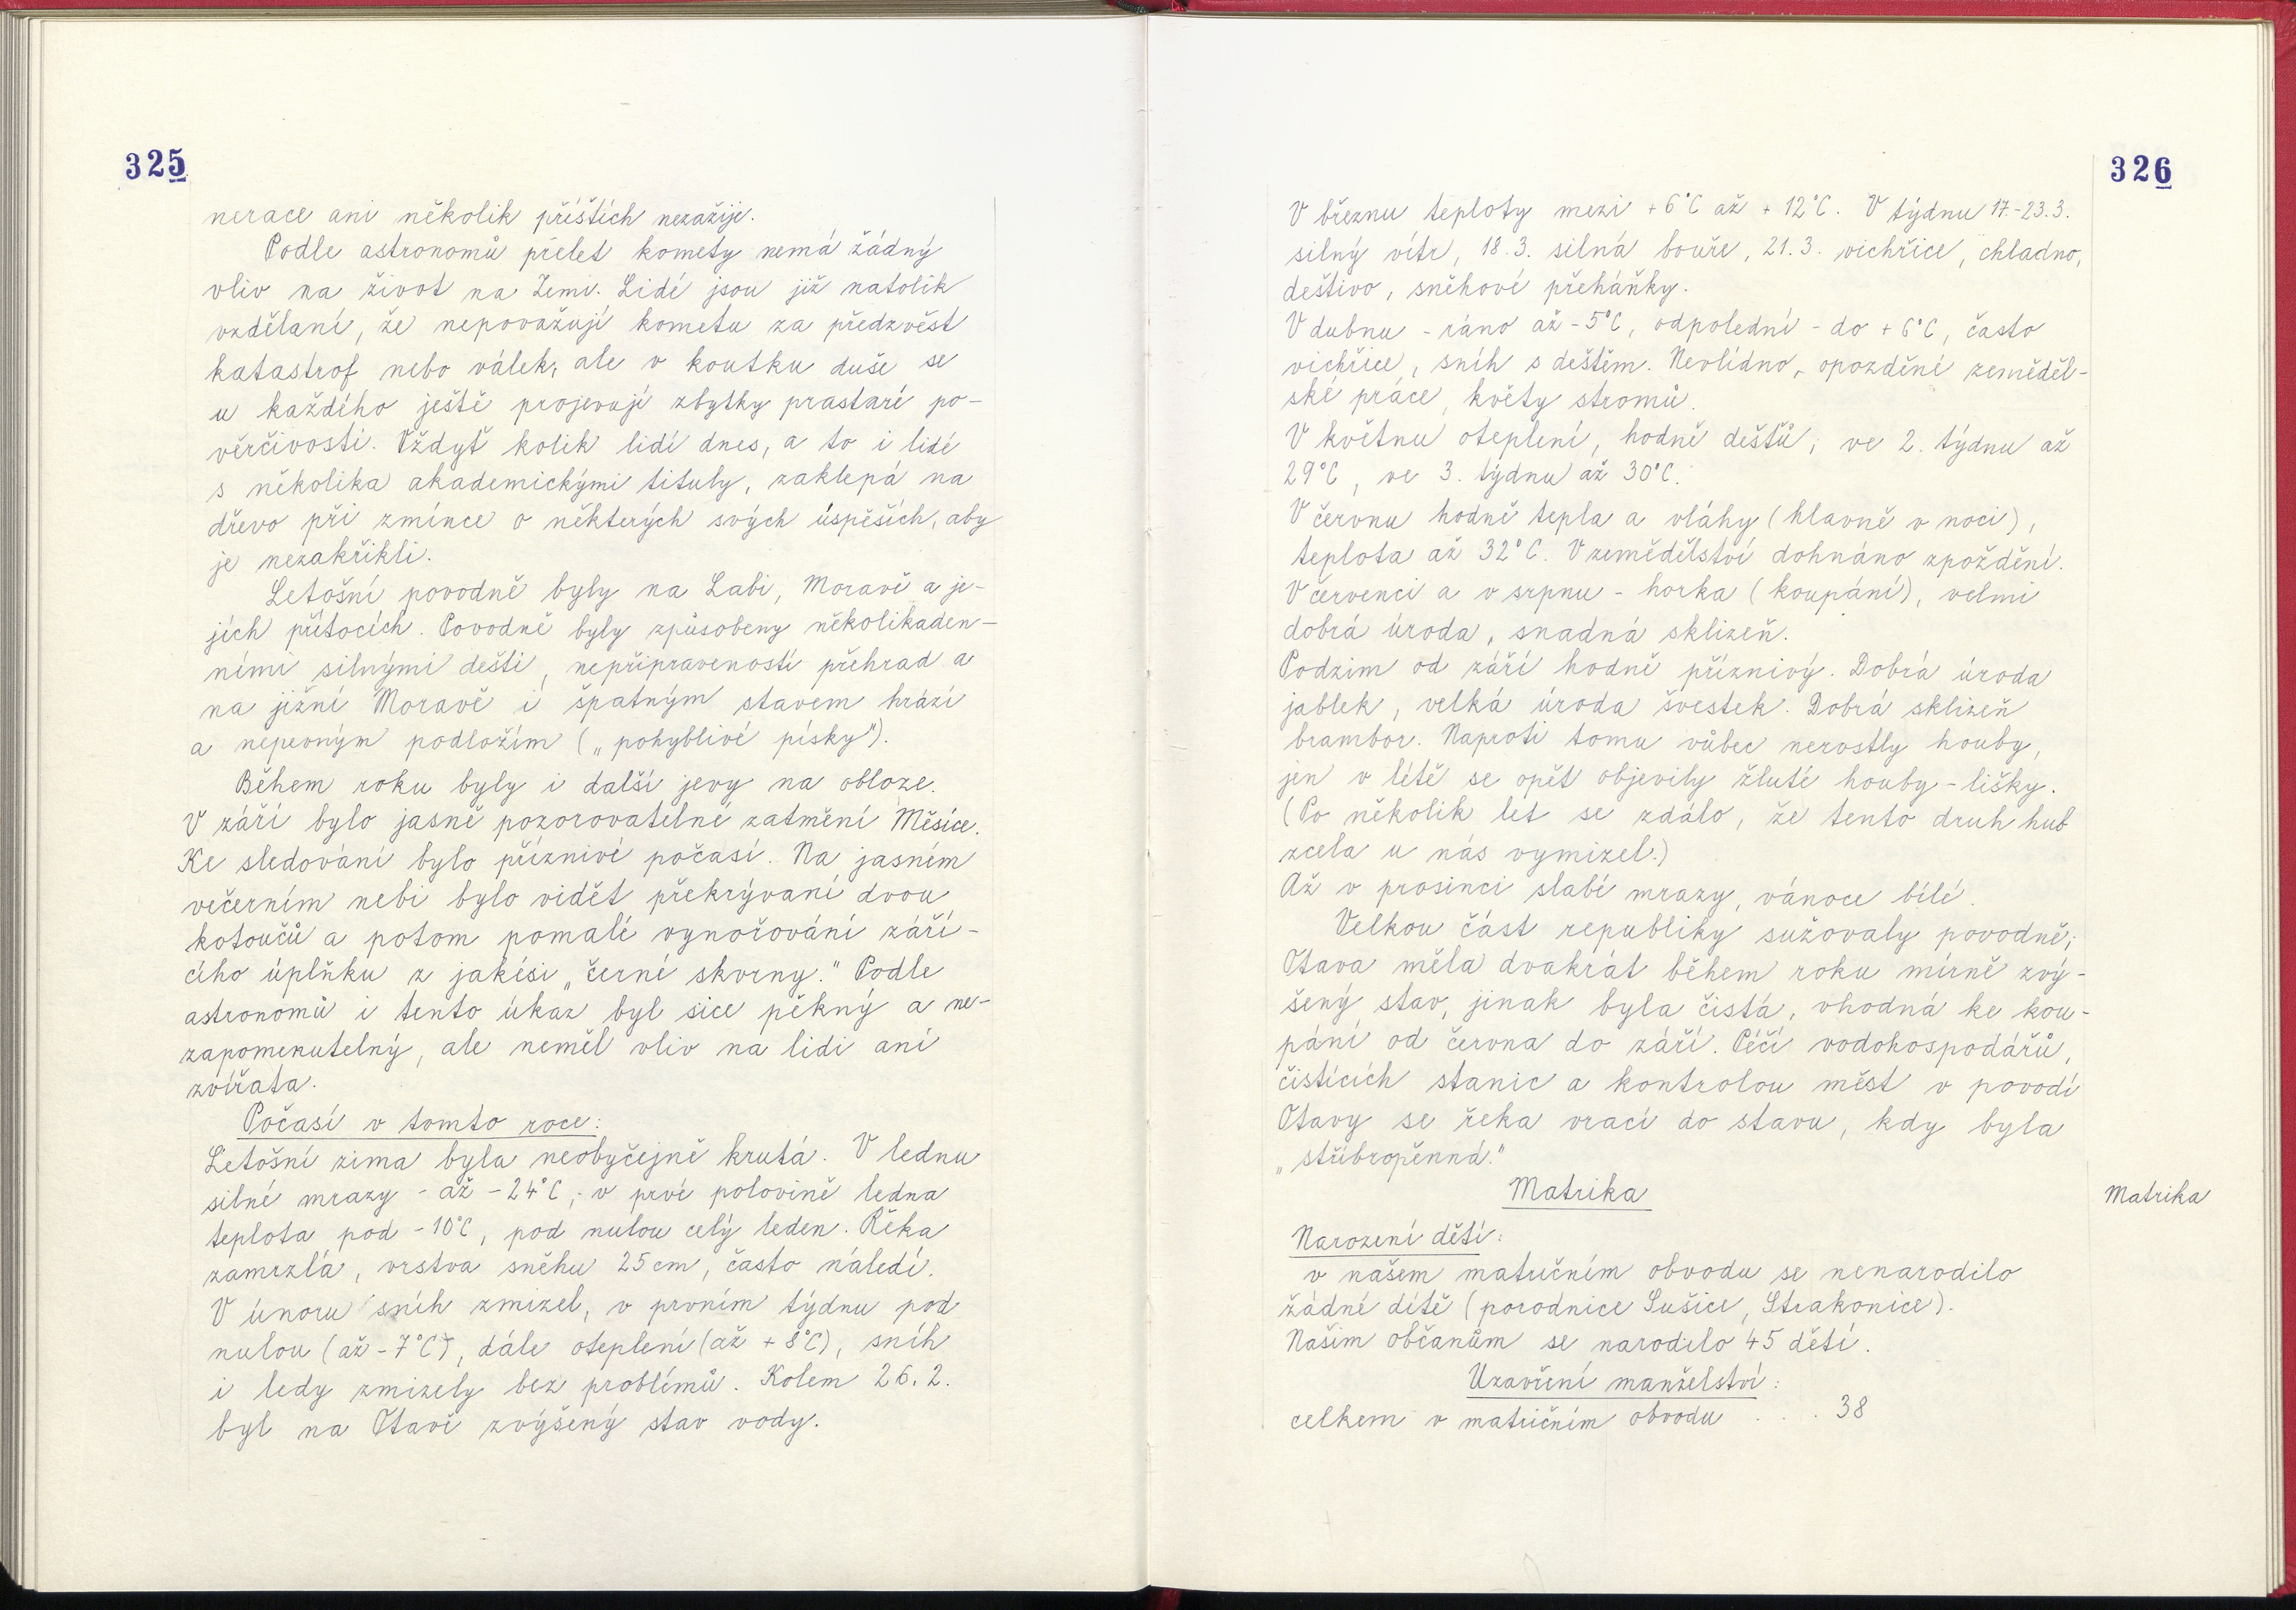 325
nerace ani několik příštích nezažije.
Podle astronomů přelet komety nemá žádný
vliv na život na Zemi. Lidé jsou již natolik
vzdělaní, že nepovažují kometu za předzvěst
katastrof nebo válek, ale v koutku duše se
u každého ještě projevují zbytky prastaré po-
věrčivosti. Vždyť kolik lidí dnes, a to i lidé
s několika akademickými tituly, zaklepá na
dřevo při zmínce o některých svých úspěších, aby
je nezakřikli.
Letošní povodně byly na Labi, Moravě a je-
jích přítocích. Povodně byly způsobeny několikaden-
ními silnými dešti, nepřipraveností přehrad a
na jižní Moravě i špatným stavem hrází
a nepevným podložím („pohyblivé písky").
Během roku byly i další jevy na obloze.
V září bylo jasně pozorovatelné zatmění Měsíce.
Ke sledování bylo příznivé počasí. Na jasném
večerním nebi bylo vidět překrývaní dvou
kotoučů a potom pomalé vynořování září-
cího úplňku z jakési „černé skvrny." Podle
astronomů i tento úkaz byl sice pěkný a ne-
zapomenutelný, ale neměl vliv na lidi ani
zvířata.
Počasí v tomto roce:
Letošní zima byla neobyčejně krutá. V lednu
silné mrazy - až -24°C, v prvé polovině ledna
teplota pod -10°C, pod nulou celý leden. Řeka
zamrzlá, vrstva sněhu 25 cm, často náledí.
V únoru sníh zmizel, v prvním týdnu pod
nulou (až -7°C), dále oteplení (až +8°C), sníh
i ledy zmizely bez problémů. Kolem 26.2.
byl na Otavě zvýšený stav vody.
326
V březnu teploty mezi +6°C až +12°C. V týdnu 17.-23.3.
silný vítr, 18.3. silná bouře, 21.3. vichřice, chladno,
deštivo, sněhové přeháňky.
V dubnu - ráno až -5°C, odpolední - do +6°C, často
vichřice, sníh s deštěm. Nevlídno, opozděné zeměděl-
ské práce, květy stromů.
V květnu oteplení, hodně dešťů, ve 2. týdnu až
29°C, ve 3. týdnu až 30°C.
V červnu hodně tepla a vláhy (hlavně v noci),
teplota až 32°C. V zemědělství dohnáno zpoždění.
V červenci a v srpnu - horka (koupání), velmi
dobrá úroda, snadná sklizeň.
Podzim od září hodně příznivý. Dobrá úroda
jablek, velká úroda švestek. Dobrá sklizeň
brambor. Naproti tomu vůbec nerostly houby,
jen v létě se opět objevily žluté houby - lišky.
(Po několik let se zdálo, že tento druh hub
zcela u nás vymizel.)
Až v prosinci slabé mrazy, vánoce bílé.
Velkou část republiky sužovaly povodně;
Otava měla dvakrát během roku mírně zvý-
šený stav, jinak byla čistá, vhodná ke kou-
pání od června do září. Péčí vodohospodářů,
čistících stanic a kontrolou měst v povodí
Otavy se řeka vrací do stavu, kdy byla
„stříbropěnná."
Matrika
Matrika
Narození dětí:
v našem matričním obvodu se nenarodilo
žádné dítě (porodnice Sušice, Strakonice).
Našim občanům se narodilo 45 dětí.
Uzavření manželství:
celkem v matričním obvodu . . . 38